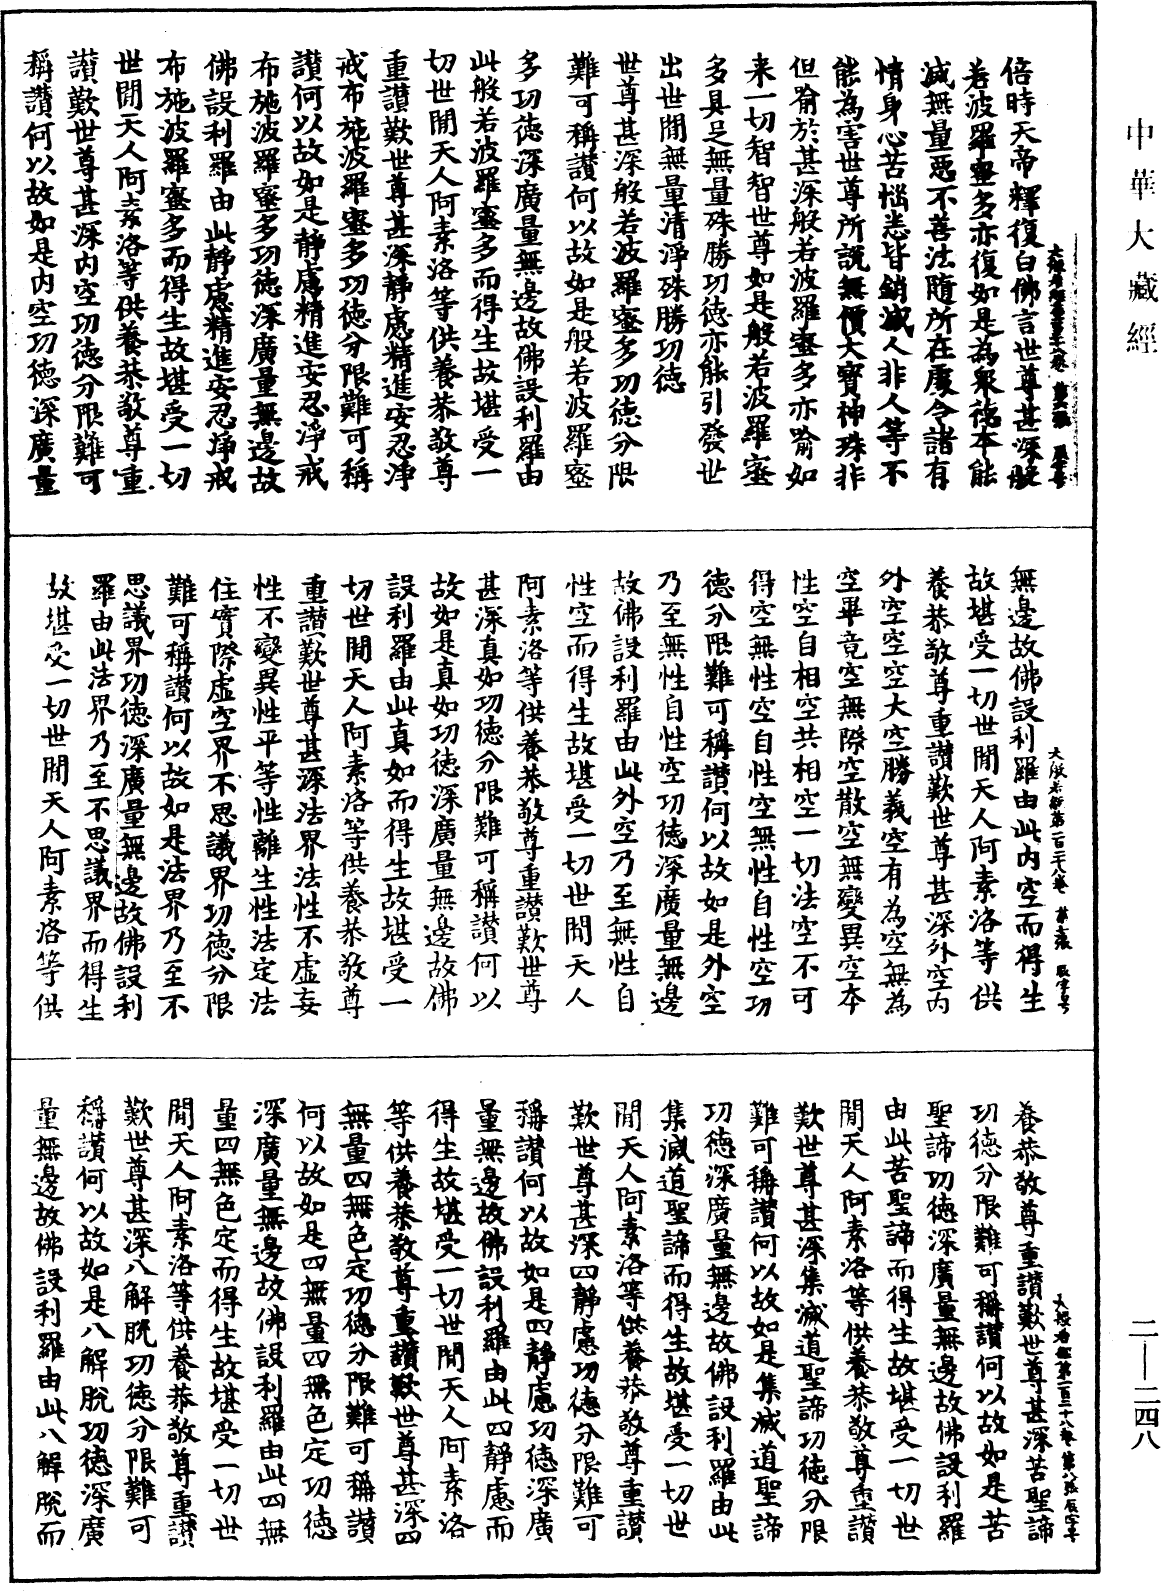 中華大藏經
倍時天帝釋復白佛言世尊甚深般
若波羅蜜多亦復如是為眾德本能
滅無量惡不善法隨所在處令諸有
情身心苦惱悉皆銷滅人非人等不
能為害世尊所說無價大寶神珠非
但喻於甚深般若波羅蜜多亦喻如
来一切智智世尊如是般若波羅蜜
多具足無量殊勝功德亦能引發世
出世間無量清淨殊勝功德
世尊甚深般若波羅蜜多功德分限
難可稱讃何以故如是般若波羅蜜
多功德深廣量無邊故佛設利羅由
此般若波羅蜜多而得生故堪受一
切世間天人阿素洛等供養恭敬尊
重讃歎世尊甚深靜慮精進安忍淨
戒布施波羅蜜多功德分限難可稱
讃何以故如是靜慮精進安忍淨戒
布施波羅蜜多功德深廣量無邊故
佛設利羅由此靜慮精進安忍淨戒
布施波羅蜜多而得生故堪受一切
世間天人阿素洛等供養恭敬尊重
讃歎世尊甚深内空功德分限難可
稱讃何以故如是内空功德深廣量
大般若經第一百二十八卷 第七張 辰字号
無邊故佛設利羅由此内空而得生
故堪受一切世間天人阿素洛等供
養恭敬尊重讃歎世尊甚深外空内
外空空空大空勝義空有為空無為
空畢竟空無際空散空無變異空本
性空自相空共相空一切法空不可
得空無性空自性空無性自性空功
德分限難可稱讃何以故如是外空
乃至無性自性空功德深廣量無邊
故佛設利羅由此外空乃至無性自
性空而得生故堪受一切世間天人
阿素洛等供養恭敬尊重讃歎世尊
甚深真如功德分限難可稱讃何以
故如是真如功德深廣量無邊故佛
設利羅由此真如而得生故堪受一
切世間天人阿素洛等供養恭敬尊
重讃歎世尊甚深法界法性不虛妄
性不變異性平等性離生性法定法
住實際虛空界不思議界功德分限
難可稱讃何以故如是法界乃至不
思議界功德深廣量無邊故佛設利
羅由此法界乃至不思議界而得生
故堪受一切世間天人阿素洛等供
養恭敬尊重讃歎世尊甚深苦聖諦
功德分限難可稱讃何以故如是苦
聖諦功德深廣量無邊故佛設利羅
由此苦聖諦而得生故堪受一切世
間天人阿素洛等供養恭敬尊重讃
歎世尊甚深集滅道聖諦功德分限
難可稱讃何以故如是集滅道聖諦
功德深廣量無邊故佛設利羅由此
集滅道聖諦而得生故堪受一切世
間天人阿素洛等供養恭敬尊重讃
歎世尊甚深四靜慮功德分限難可
稱讃何以故如是四靜慮功德深廣
量無邊故佛設利羅由此四靜慮而
得生故堪受一切世間天人阿素洛
等供養恭敬尊重讃歎世尊甚深四
無量四無色定功德分限難可稱讃
何以故如是四無量四無色定功德
深廣量無邊故佛設利羅由此四無
量四無色定而得生故堪受一切世
間天人阿素洛等供養恭敬尊重讃
歎世尊甚深八解脫功德分限難可
稱讃何以故如是八解脫功德深廣
量無邊故佛設利羅由此八解脫而
二—二四八